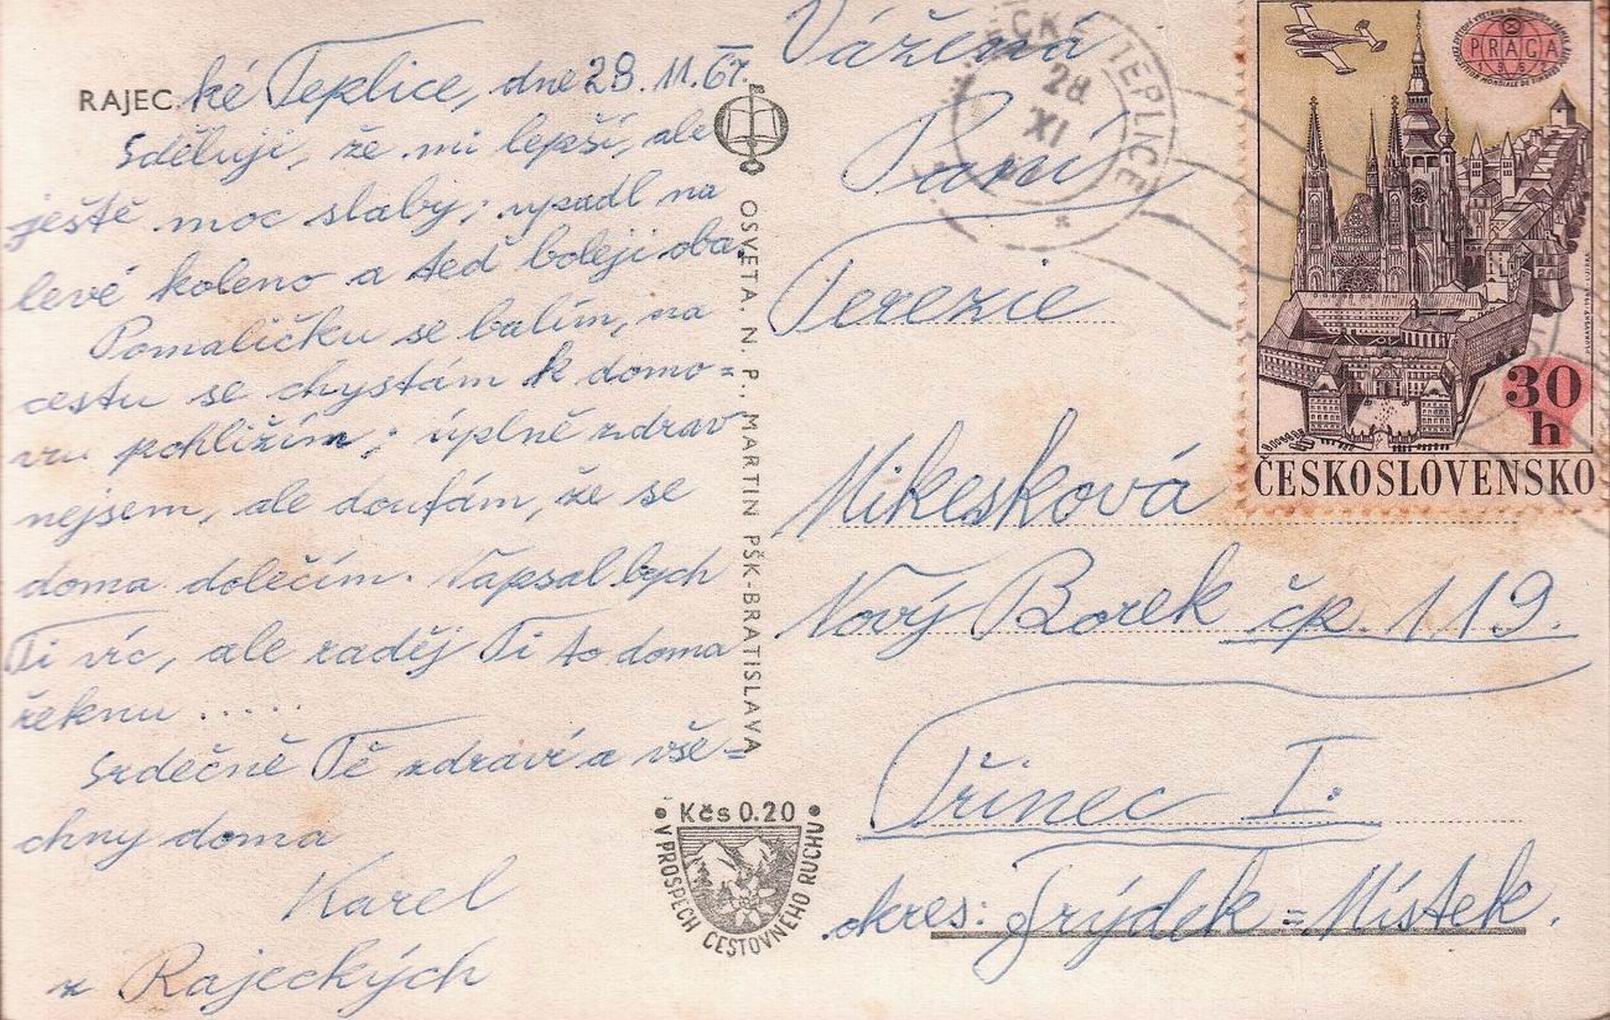 RAJEC.ké Teplice, dne 28.11.67.
Sděluji, že mi lepší, ale
ještě moc slabý; upadl na
levé koleno a teď boleji oba.
Pomaličku se balím, na
cestu se chystám k domo=
vu pohlížím; úplně zdrav
nejsem, ale doufám, že se
doma doléčím. Napsal bych
Ti víc, ale raděj Ti to doma
řeknu .....
Srdečně Tě zdraví a vše=
chny doma
Karel
z Rajeckých
OSVETA, N. P., MARTIN PŠK-BRATISLAVA
Kčs 0.20
V PROSPECH CESTOVNÉHO RUCHU
Vážená
Paní
Terezie
Mikesková
Nový Borek čp. 119.
Třinec I.
okres: Frýdek=Místek.
TEPLICE
28
XI
PRAGA
30
h
ČESKOSLOVENSKO